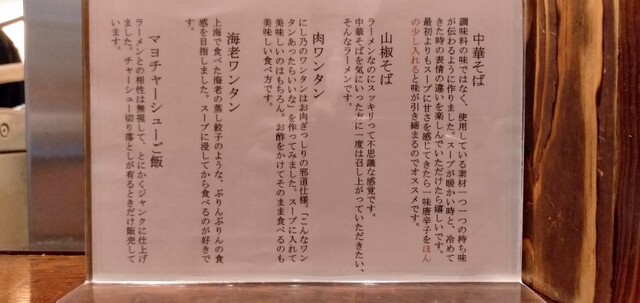 中華そば
調味料の味ではなく、使用している素材一つ一つの持ち味
が伝わるように作りました。スープが暖かい時と、冷めて
きた時の表情の違いを楽しんでいただけたら嬉しいです。
最初よりもスープに甘さを感じてきたら一味唐辛子をほん
の少し入れると味が引き締まるのでオススメです。
山椒そば
ラーメンなのにスッキリって不思議な感覚です。
中華そばを気にいった方に一度は召し上がっていただきたい、
そんなラーメンです。
肉ワンタン
にし乃のワンタンはお肉ぎっしりの邪道仕様。「こんなワン
タンあったらいいな」を作ってみました。スープに入れて
美味しいのはもちろん。お酢をかけてそのまま食べるのも
美味しい食べ方です。
海老ワンタン
上海で食べた海老の蒸し餃子のような、ぷりんぷりんの食
感を目指しました。スープに浸してから食べるのが好きで
す。
マヨチャーシューご飯
ラーメンとの相性は無視して、とにかくジャンクに仕上げ
ました。チャーシュー切り落としが有るときだけ販売して
います。